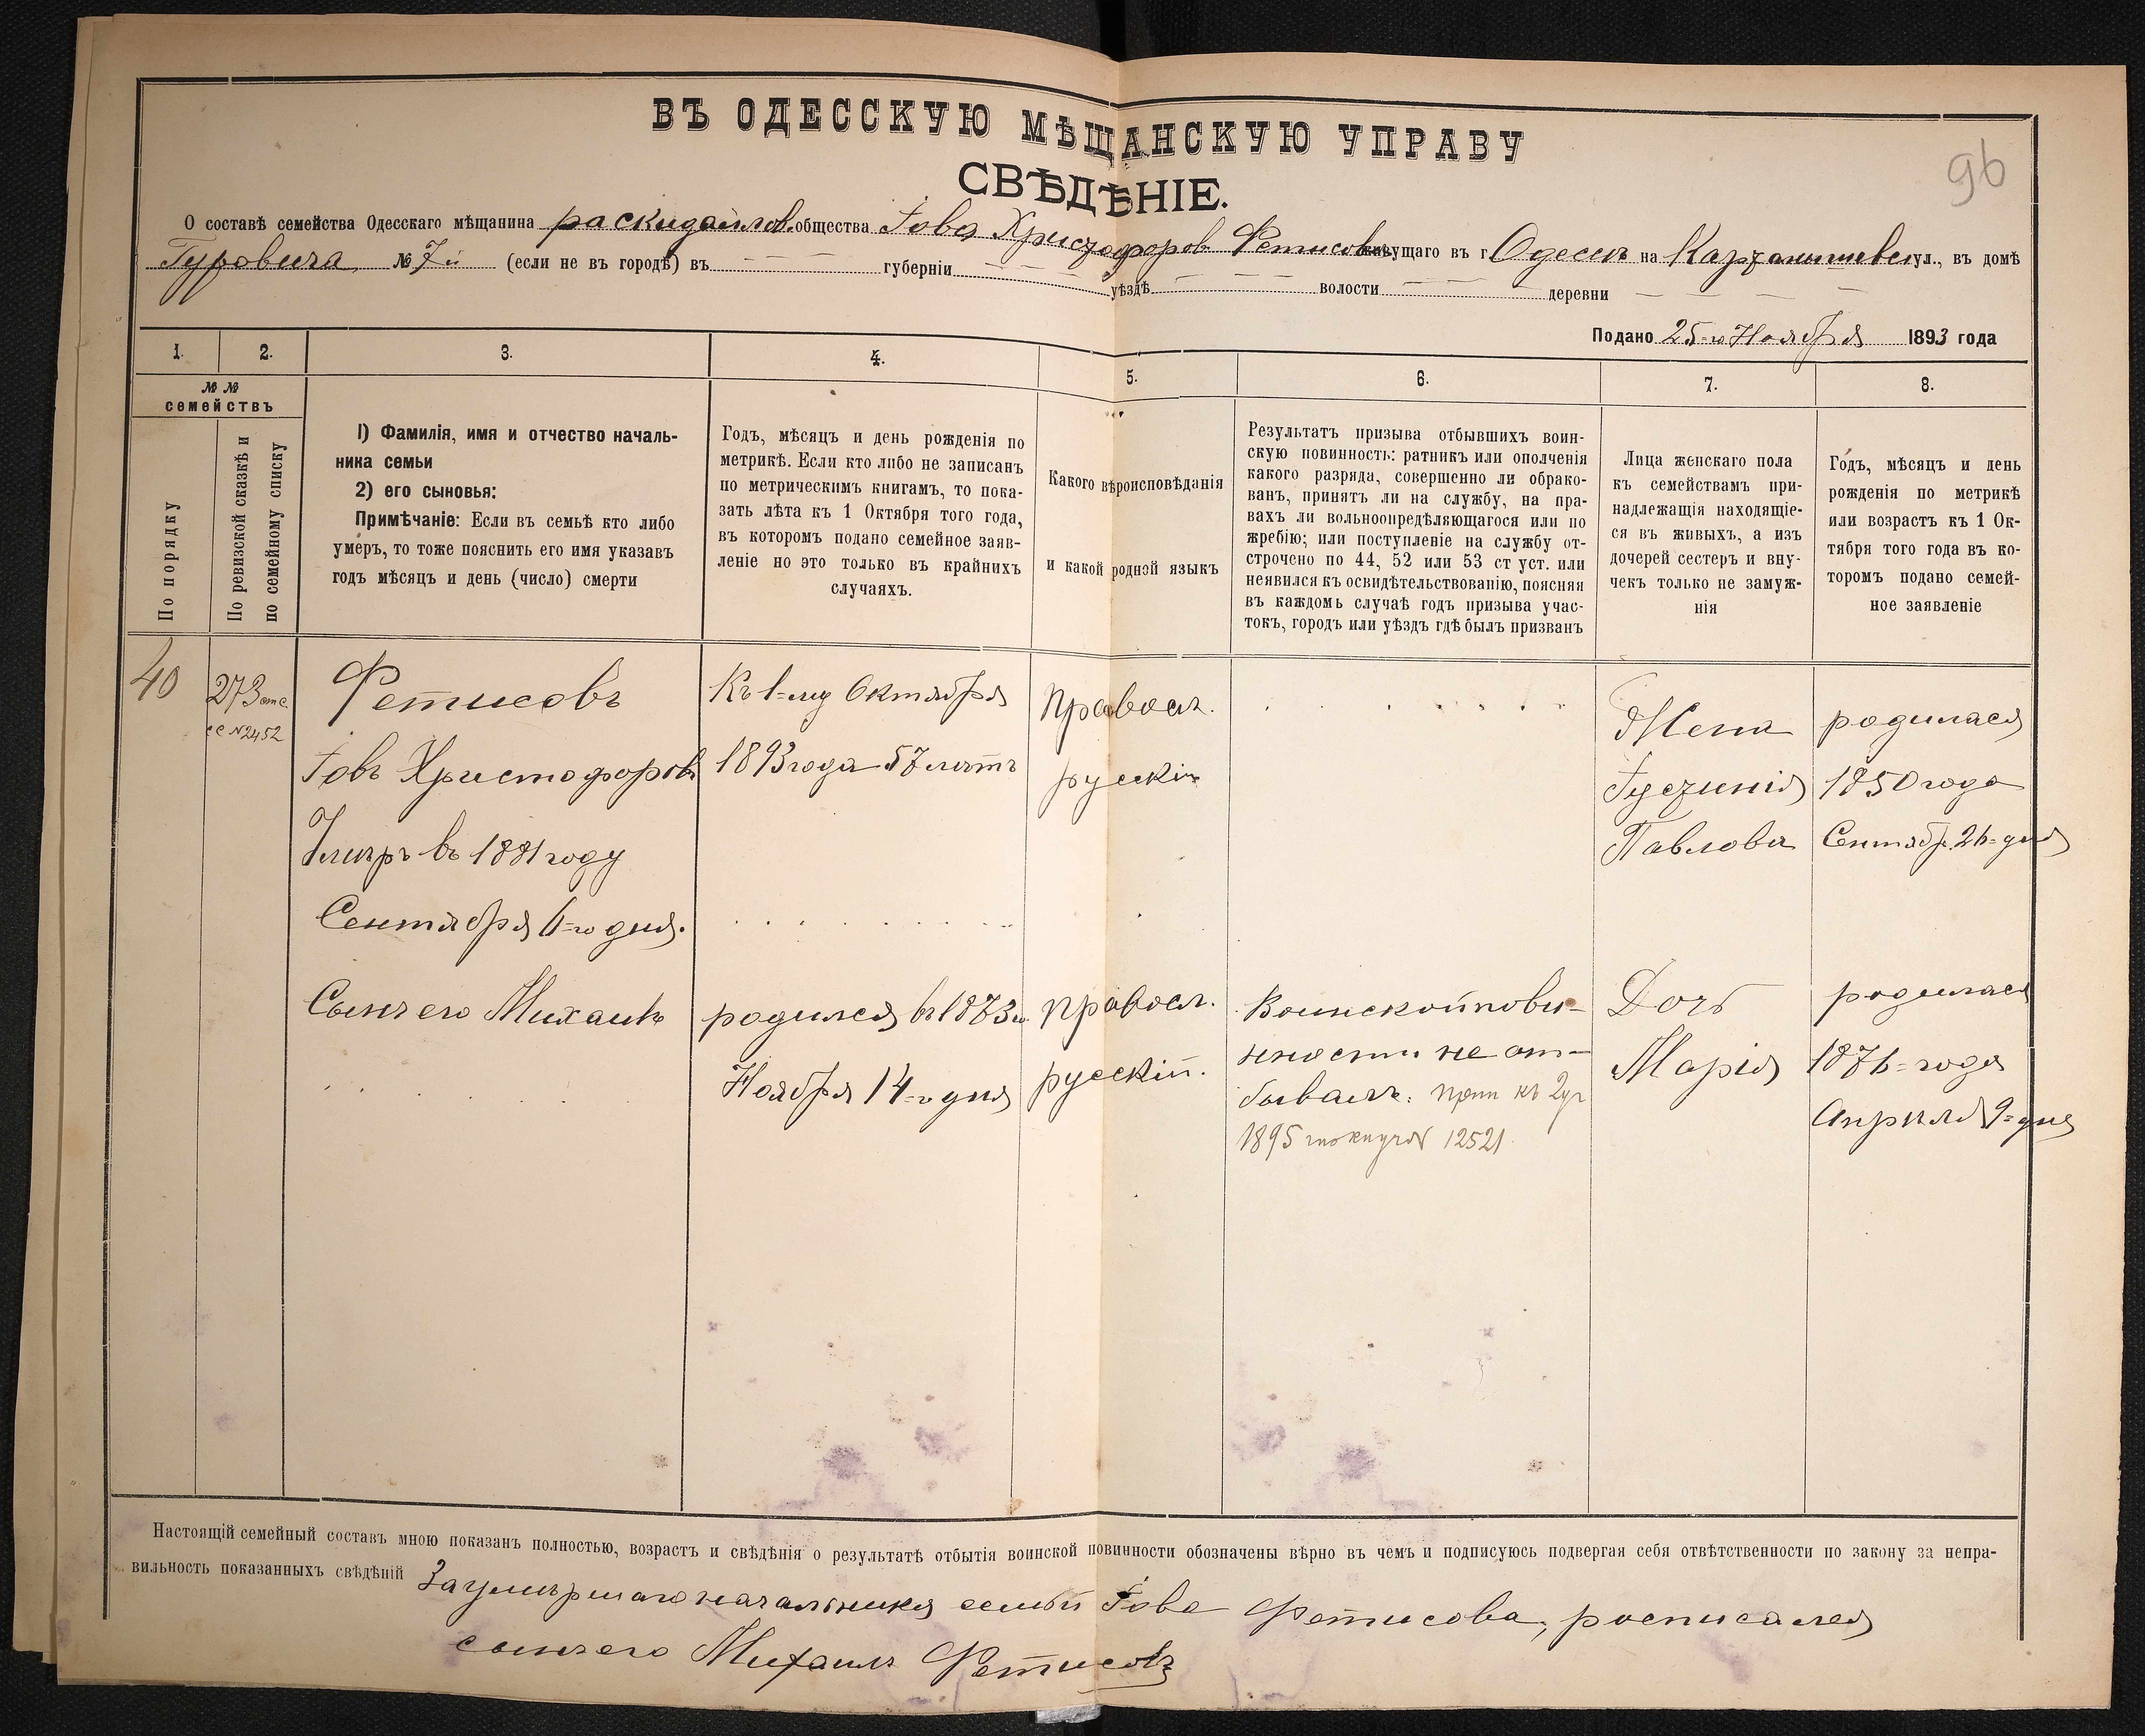 ВЪ ОДЕССКУЮ МѢЩАНСКУЮ УПРАВУ
96
СВѢДѢНІЕ.
О составѣ семейства Одесскаго мѣщанина раскидайлов. общества Іова Христофоров Фетисова живущаго въ г Одессѣ на ул., въ домѣ
Гуровича № 7й (если не въ городѣ) въ губерніи уѣздѣ волости деревни
Подано 25=го Ноября 1893 года
1. 2. 3. 4. 5. 6. 7. 8.
№ №
семействъ
По порядку
По ревизской сказкѣ и
по семейному списку
1) Фамилія, имя и отчество началь-
ника семьи
2) его сыновья:
Примѣчаніе: Если въ семьѣ кто либо
умеръ, то тоже пояснить его имя указавъ
годъ мѣсяцъ и день (число) смерти
Годъ, мѣсяцъ и день рожденія по
метрикѣ. Если кто либо не записанъ
по метрическимъ книгамъ, то пока-
зать лѣта къ 1 Октября того года,
въ которомъ подано семейное заяв-
леніе но это только въ крайнихъ
случаяхъ.
Какого вѣроисповѣданія
и какой родной языкъ
Результатъ призыва отбывшихъ воин-
скую повинность: ратникъ или ополченія
какого разряда, совершенно ли обрако-
ванъ, принятъ ли на службу, на пра-
вахъ ли вольноопредѣляющагося или по
жребію; или поступленіе на службу от-
строчено по 44, 52 или 53 ст уст. или
неявился къ освидѣтельствованію, поясняя
въ каждомъ случаѣ годъ призыва учас-
токъ, городъ или уѣздъ гдѣ былъ призванъ
Лица женскаго пола
къ семействамъ при-
надлежащія находящіе-
ся въ живыхъ, а изъ
дочерей сестеръ и вну-
чекъ только не замуж-
нія
Годъ, мѣсяцъ и день
рожденія по метрикѣ
или возрастъ къ 1 Ок-
тября того года въ ко-
торомъ подано семей-
ное заявленіе
40
273
№2452
Фетисовъ
Іовъ Христофоровъ
Умеръ въ 1881 году
Сентября 6=го дня.
Сынъ его Михаилъ
Къ 1=му Октября
1893 года 57 лѣтъ
родился въ 1873г.
Ноября 14=го дня
правосл.
русскій
правосл.
русскій.
Воинской пови-
нности не от-
бывалъ.
1895 12521
Жена
Іустинія
Павлова
Дочь
Марія
родилася
1850 года
Сентябр. 26=дня
родилася
1876=года
Апрѣля 9=дня
Настоящій семейный составъ мною показанъ полностью, возрастъ и свѣдѣнія о результатѣ отбытія воинской повинности обозначены вѣрно въ чемъ и подписуюсь подвергая себя отвѣтственности по закону за непра-
вильность показанныхъ свѣдѣній За умѣршаго начальника семьи Іова Фетисова, росписался
сынъ его Михаилъ Фетисовъ